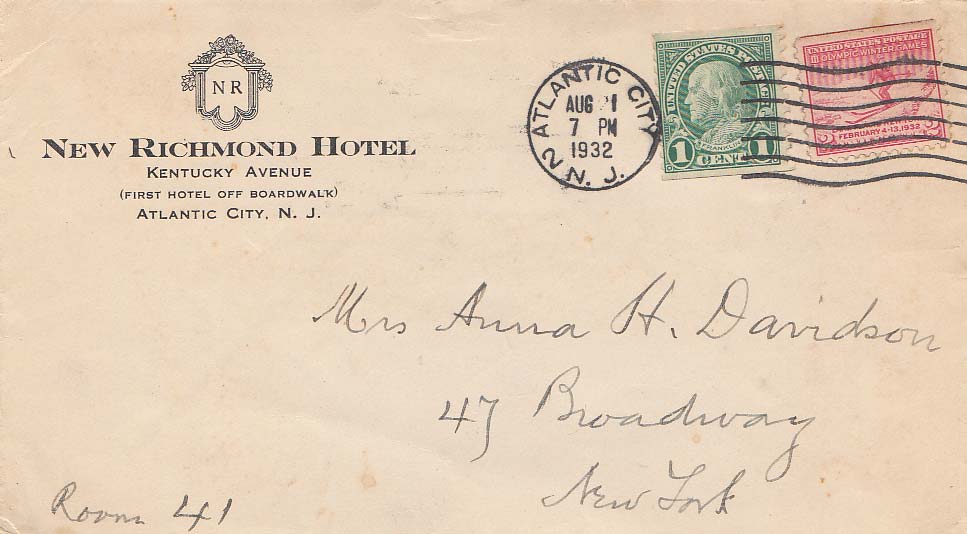 NR
NEW RICHMOND HOTEL
KENTUCKY AVENUE
(FIRST HOTEL OFF BOARDWALK)
ATLANTIC CITY, N. J.
ATLANTIC CITY
AUG 1
7 PM
1932
2 N. J.
UNITED STATES POSTAGE
FRANKLIN
1 CENT 1
UNITED STATES POSTAGE
III OLYMPIC WINTER GAMES
FEBRUARY 4-13, 1932
2
Mrs Anna H. Davidson
47 Broadway
New York
Room 41